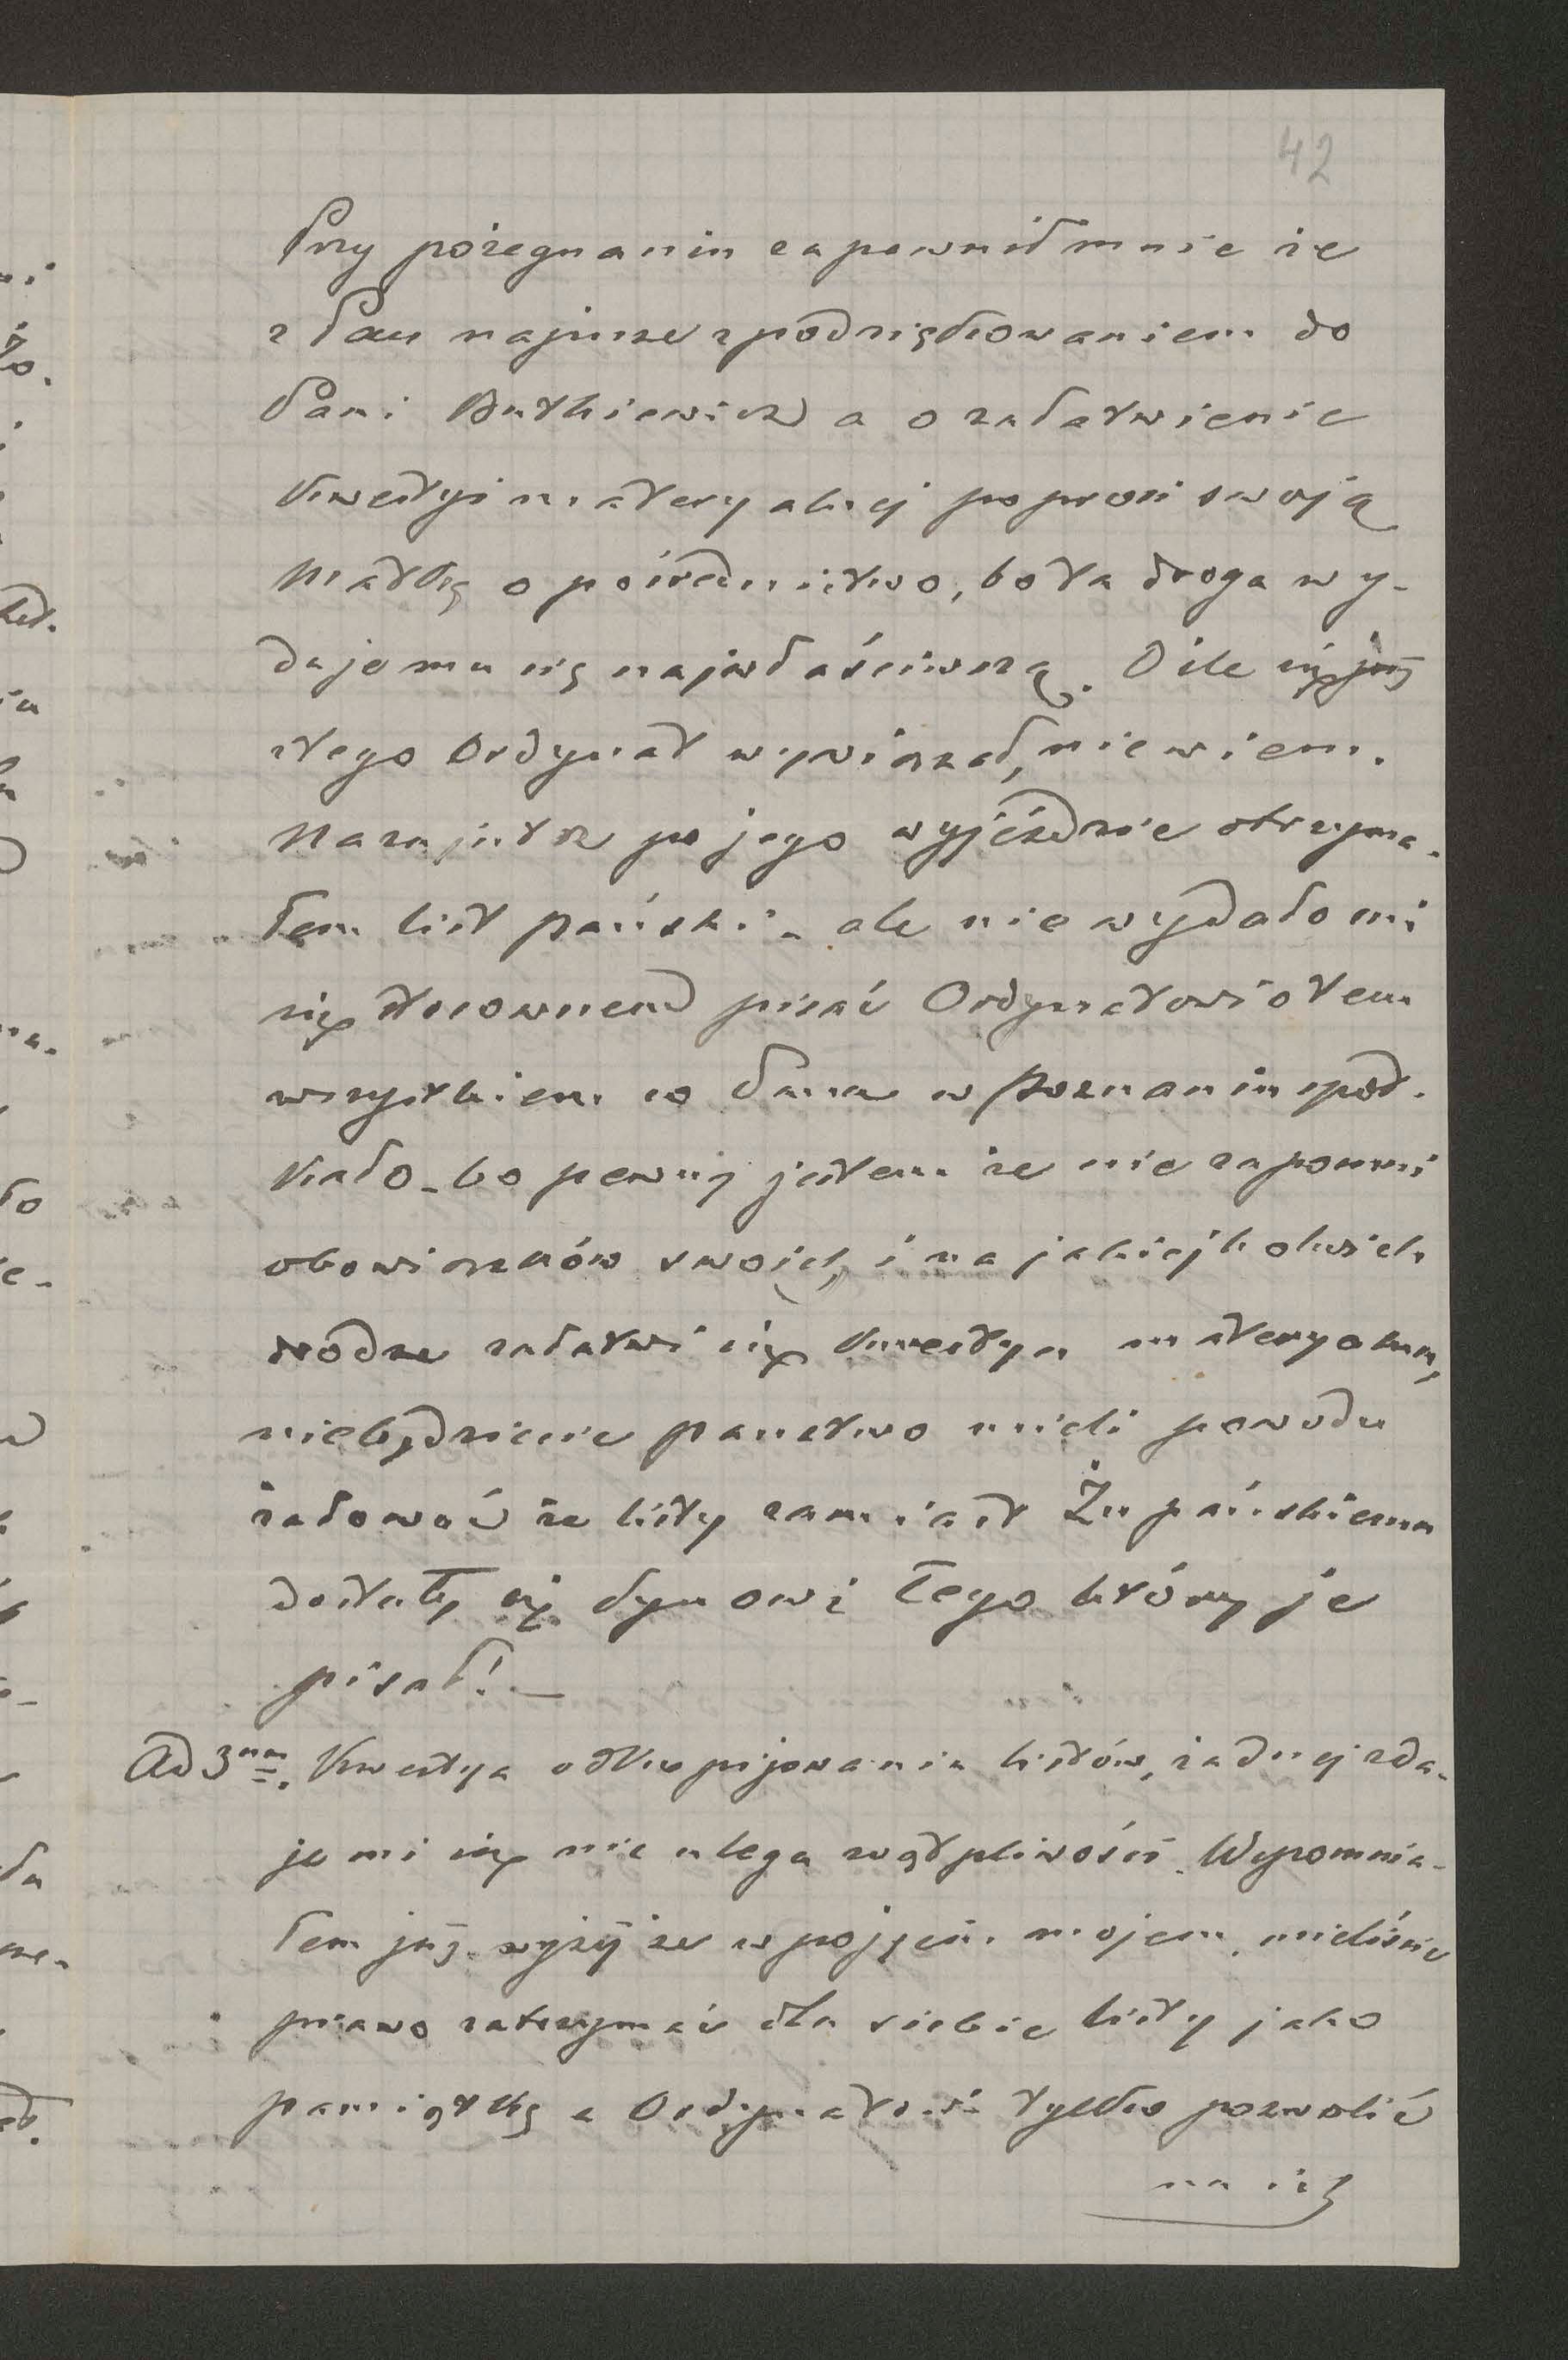 42
Przy pożegnaniu zapewnił mnie że
z Pau napisze z podziękowaniem do
Pani Butkiewicz a o załatwienie
kwestyi materyalnej poprosi swoją
Matkę o pośrednictwo, bo ta droga wy-
daje mu się najwłaściwszą. O ile się już
z tego Ordynat wywiązał, nie wiem.
Nazajutrz po jego wyjeździe otrzyma-
łem list pański - ale nie wydało mi
się stosownem pisać Ordynatowi o tem
wszystkiem co Pana w Poznaniu spot-
kało - bo pewny jestem że nie zapomni
obowiązków swoich, i na jakiejkolwiek
drodze załatwi się kwestya materyalna,
niebędziecie panstwo mieli powodu
żałować że listy zamiast Żupańskiemu
dostały się synowi tego który je
pisał! —
Ad 3um. Kwestya odkopijowania listów, żadnej zda-
je mi się nie ulega wątpliwości. Wspomnia-
łem już wyżej że w pojęciu mojem, mieliście
prawo zatrzymać dla siebie listy jako
pamiątkę a Ordynatowi tylko pozwolić
na ich